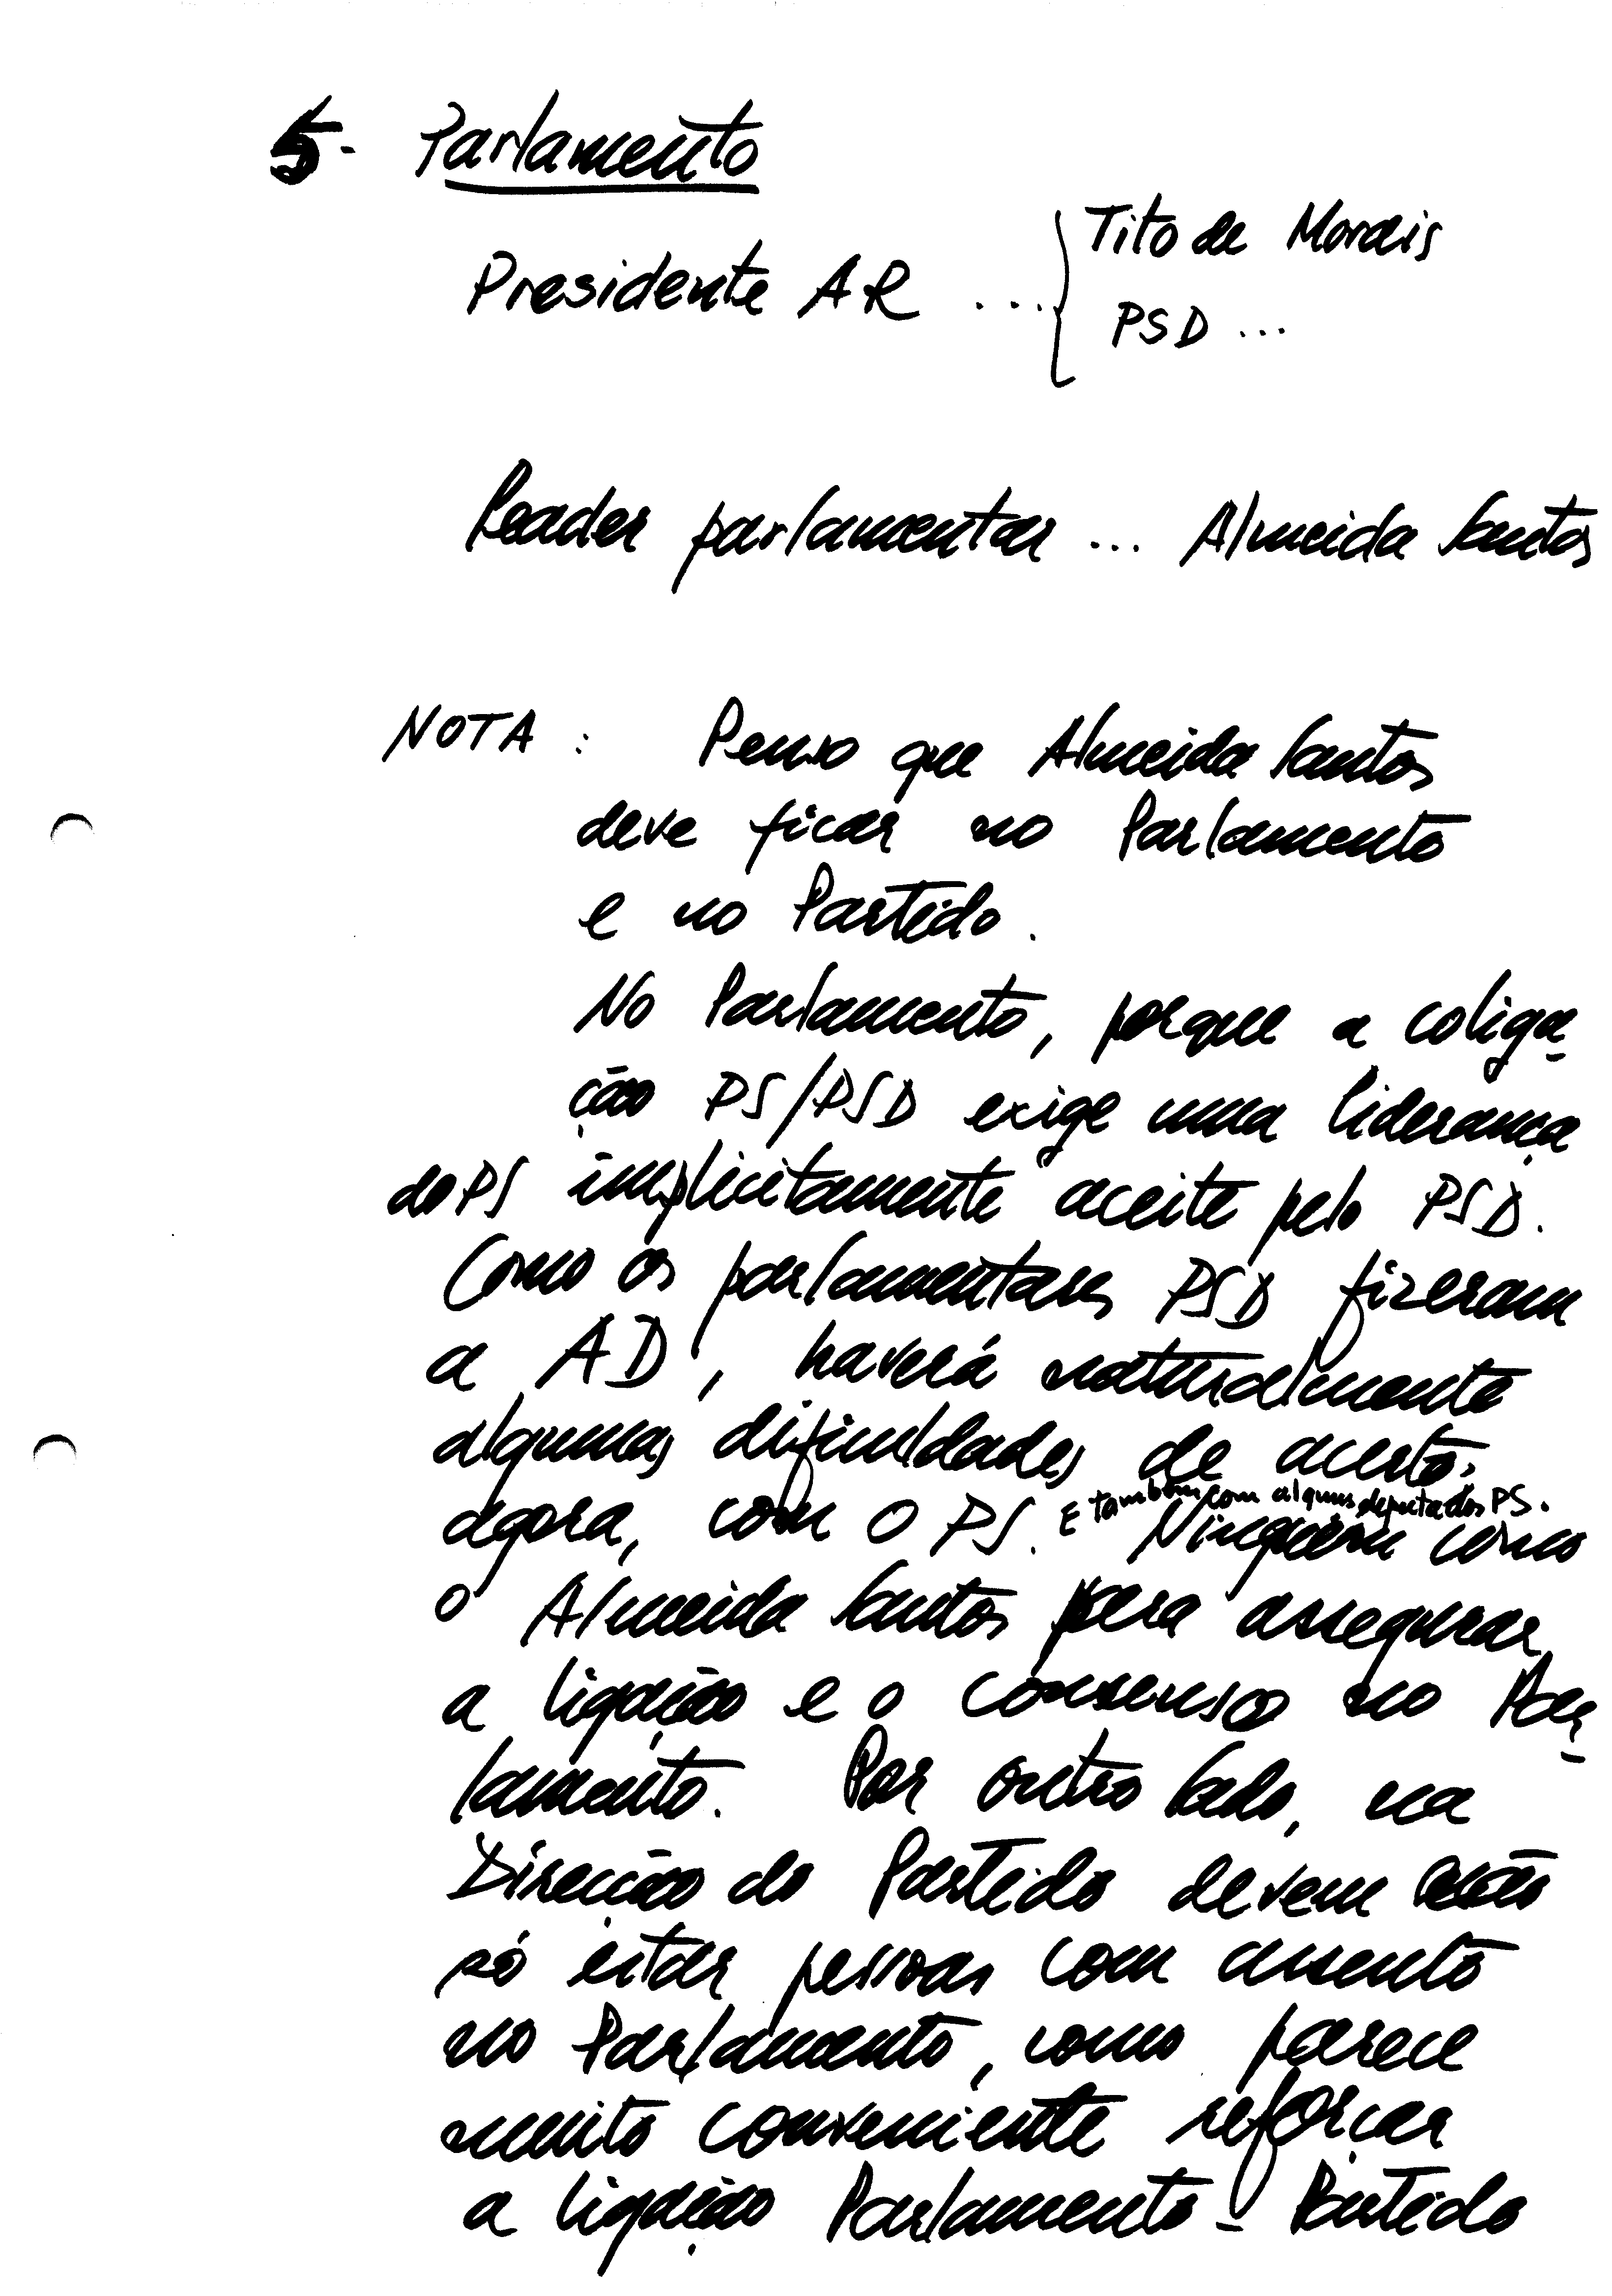 5- Parlamento
Tito de Morais
Presidente AR ...
PSD ...
Leader parlamentar ... Almeida Santos
NOTA : Penso que Almeida Santos
deve ficar no Parlamento
e no Partido.
No Parlamento, porque a coliga-
ção PS/PSD exige uma liderança
do PS implicitamente aceite pelo PSD.
Como os parlamentares PSD fizeram
a AD, haverá naturalmente
algumas dificuldades de acerto,
E também com alguns deputados PS.
agora, com o PS. Ninguém como
o Almeida Santos para assegurar
a ligação e o consenso no Par-
lamento. Por outro lado, na
Direcção do Partido devem não
só estar pessoas com assento
no Parlamento, como parece
muito conveniente reforçar
a ligação Parlamento - Partido